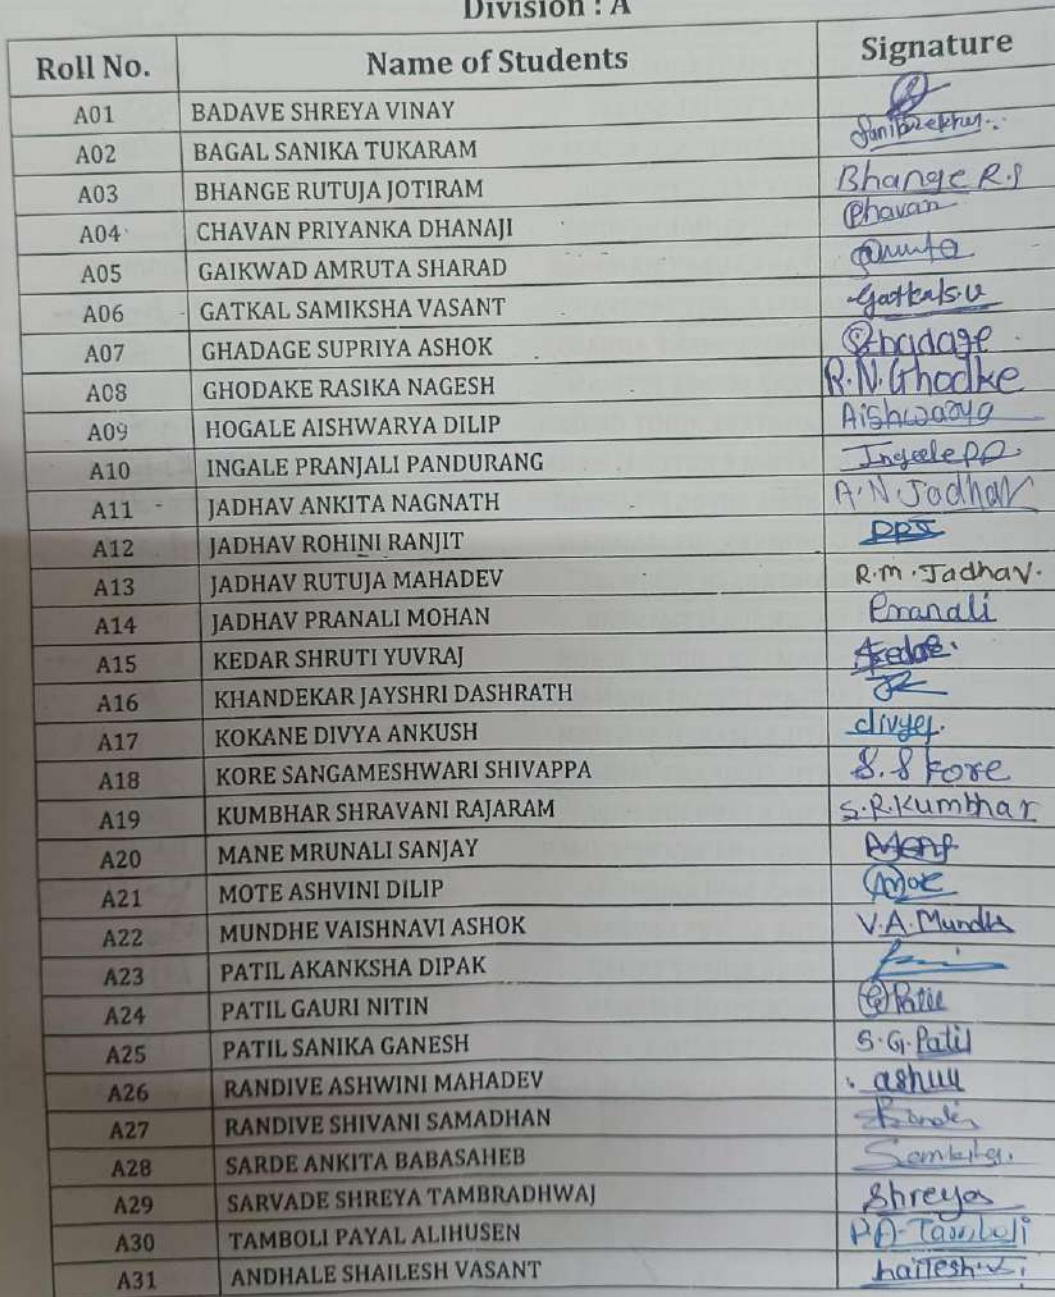 Division : A
Roll No. Name of Students Signature
A01 BADAVE SHREYA VINAY
A02 BAGAL SANIKA TUKARAM
A03 BHANGE RUTUJA JOTIRAM Bhange R.J
A04 CHAVAN PRIYANKA DHANAJI Chavan
A05 GAIKWAD AMRUTA SHARAD
A06 GATKAL SAMIKSHA VASANT Gatkal S.V
A07 GHADAGE SUPRIYA ASHOK Ghadage
A08 GHODAKE RASIKA NAGESH R.N.Ghodke
A09 HOGALE AISHWARYA DILIP Aishwarya
A10 INGALE PRANJALI PANDURANG Ingale P.P.
A11 JADHAV ANKITA NAGNATH A.N Jadhav
A12 JADHAV ROHINI RANJIT
A13 JADHAV RUTUJA MAHADEV R.m.Jadhav.
A14 JADHAV PRANALI MOHAN Pranali
A15 KEDAR SHRUTI YUVRAJ
A16 KHANDEKAR JAYSHRI DASHRATH
A17 KOKANE DIVYA ANKUSH divya.
A18 KORE SANGAMESHWARI SHIVAPPA S.S Kore
A19 KUMBHAR SHRAVANI RAJARAM S.R.Kumbhar
A20 MANE MRUNALI SANJAY
A21 MOTE ASHVINI DILIP
A22 MUNDHE VAISHNAVI ASHOK V.A.Mundhe
A23 PATIL AKANKSHA DIPAK
A24 PATIL GAURI NITIN G Patil
A25 PATIL SANIKA GANESH S.G.Patil
A26 RANDIVE ASHWINI MAHADEV
A27 RANDIVE SHIVANI SAMADHAN
A28 SARDE ANKITA BABASAHEB
A29 SARVADE SHREYA TAMBRADHWAJ Shreya
A30 TAMBOLI PAYAL ALIHUSEN P.A-Tamboli
A31 ANDHALE SHAILESH VASANT